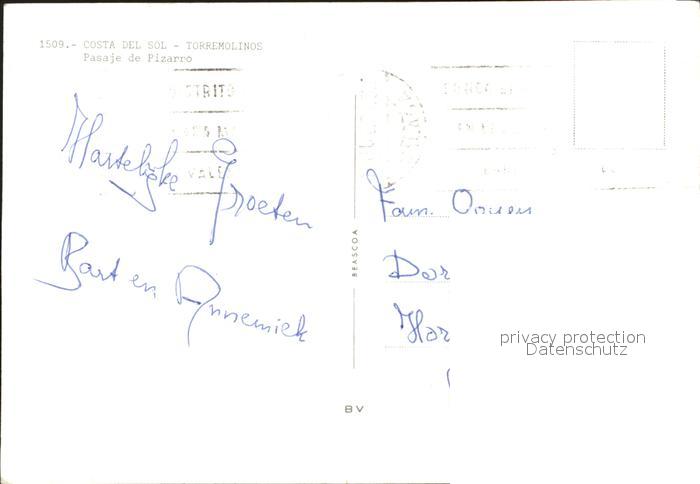 1509.- COSTA DEL SOL - TORREMOLINOS
Pasaje de Pizarro
Hartelijke Groeten
Bart en Annemiek
BEASCOA
Fam.
Dor
Hor
privacy protection
Datenschutz
BV